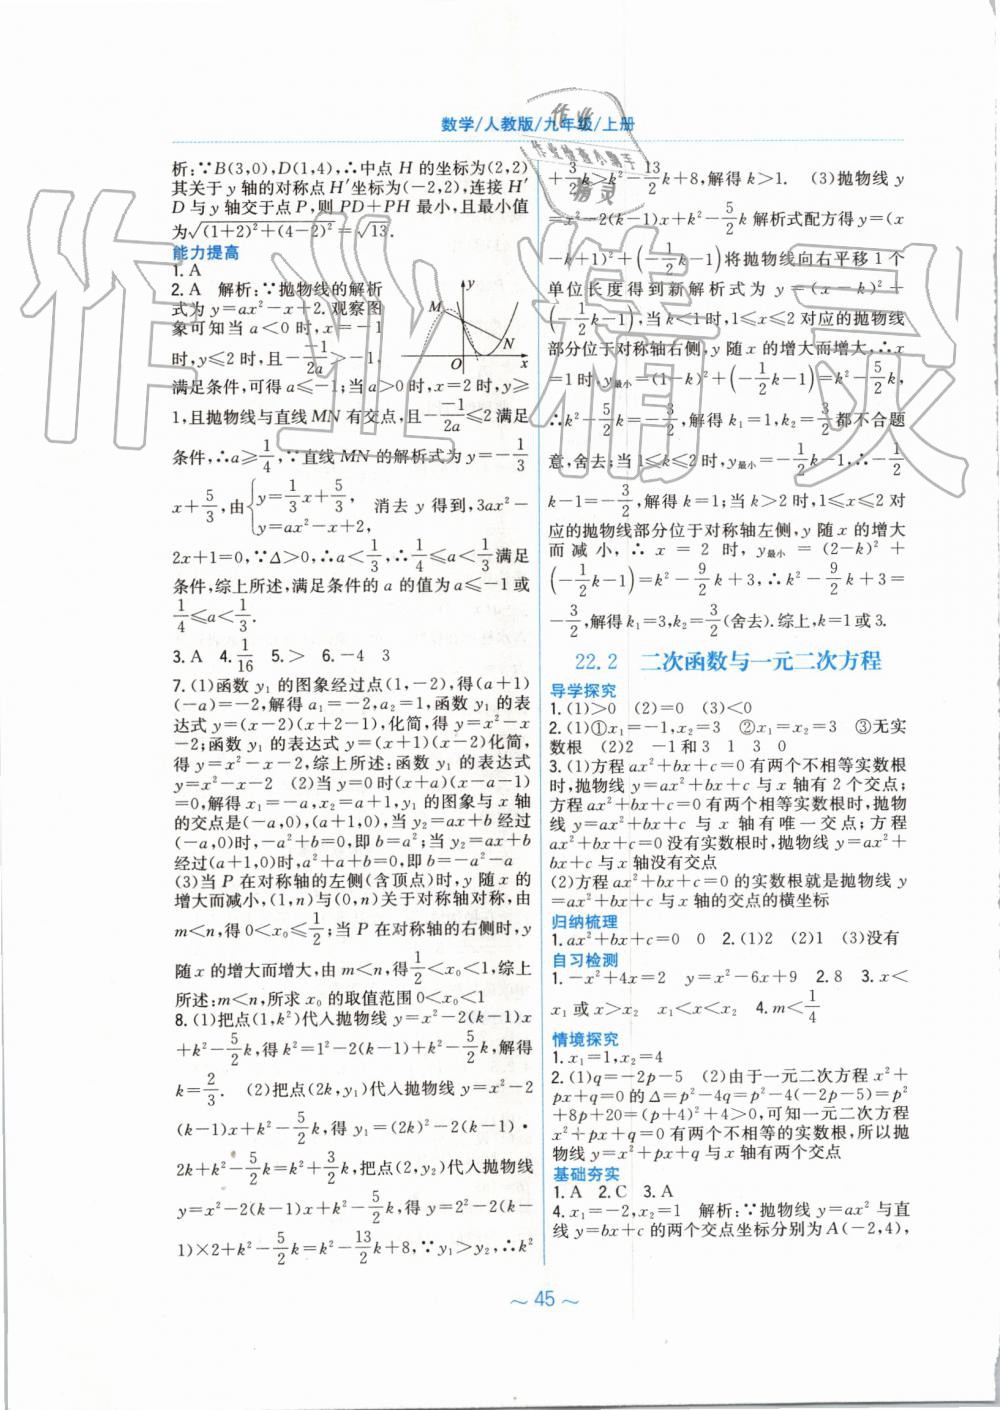 数学/人教版/九年级/上册
析:∵B(3,0),D(1,4),∴中点 H 的坐标为(2,2)
其关于 y 轴的对称点 H′坐标为(-2,2),连接 H′
D 与 y 轴交于点 P,则 PD+PH 最小,且最小值
为√((1+2)²+(4-2)²)=√13.
能力提高
1. A
2. A 解析:∵抛物线的解析
式为 y=ax²-x+2. 观察图
象可知当 a<0 时,x=-1
时,y≤2 时,且-(-1)/(2a)≥-1,
满足条件,可得 a≤-1;当 a>0 时,x=2 时,y≥
1,且抛物线与直线 MN 有交点,且-(-1)/(2a)≤2 满足
条件,∴a≥1/4,∵直线 MN 的解析式为 y=-1/3
x+5/3,由{y=-1/3x+5/3, y=ax²-x+2, 消去 y 得到,3ax²-
2x+1=0,∵Δ>0,∴a<1/3,∴1/4≤a<1/3满足
条件,综上所述,满足条件的 a 的值为 a≤-1 或
1/4≤a<1/3.
3. A 4. 1/16 5. > 6. -4 3
7. (1)函数 y₁ 的图象经过点(1,-2),得(a+1)
(-a)=-2,解得 a₁=-2,a₂=1,函数 y₁ 的表
达式 y=(x-2)(x+2-1),化简,得 y=x²-x
-2;函数 y₁ 的表达式 y=(x+1)(x-2)化简,
得 y=x²-x-2,综上所述:函数 y₁ 的表达式
y=x²-x-2 (2)当 y=0 时(x+a)(x-a-1)
=0,解得 x₁=-a,x₂=a+1,y₁ 的图象与 x 轴
的交点是(-a,0),(a+1,0),当 y₂=ax+b 经过
(-a,0)时,-a²+b=0,即 b=a²;当 y₂=ax+b
经过(a+1,0)时,a²+a+b=0,即 b=-a²-a
(3)当 P 在对称轴的左侧(含顶点)时,y 随 x 的
增大而减小,(1,n)与(0,n)关于对称轴对称,由
m<n,得 0<x₀≤1/2;当 P 在对称轴的右侧时,y
随 x 的增大而增大,由 m<n,得1/2<x₀<1,综上
所述:m<n,所求 x₀ 的取值范围 0<x₀<1
8. (1)把点(1,k²)代入抛物线 y=x²-2(k-1)x
+k²-5/2k,得 k²=1²-2(k-1)+k²-5/2k,解得
k=2/3. (2)把点(2k,y₁)代入抛物线 y=x²-2
(k-1)x+k²-5/2k,得 y₁=(2k)²-2(k-1)·
2k+k²-5/2k=k²+3/2k,把点(2,y₂)代入抛物线
y=x²-2(k-1)x+k²-5/2k,得 y=2²-2(k-
1)×2+k²-5/2k=k²-13/2k+8,∵y₁>y₂,∴k²
+3/2k>k²-13/2k+8,解得 k>1. (3)抛物线 y
=x²-2(k-1)x+k²-5/2k 解析式配方得 y=(x
-k+1)²+(-1/2k-1)将抛物线向右平移 1 个
单位长度得到新解析式为 y=(x-k)²+
(-1/2k-1),当 k<1 时,1≤x≤2 对应的抛物线
部分位于对称轴右侧,y 随 x 的增大而增大,∴x
=1 时,y最小=(1-k)²+(-1/2k-1)=k²-5/2k,
∴k²-5/2k=-3/2,解得 k₁=1,k₂=3/2都不合题
意,舍去;当 1≤k≤2 时,y最小=-1/2k-1,∴-1/2
k-1=-3/2,解得 k=1;当 k>2 时,1≤x≤2 对
应的抛物线部分位于对称轴左侧,y 随 x 的增大
而减小,∴x=2 时,y最小=(2-k)²+
(-1/2k-1)=k²-9/2k+3,∴k²-9/2k+3=
-3/2,解得 k₁=3,k₂=3/2(舍去).综上,k=1 或 3.
22.2 二次函数与一元二次方程
导学探究
1. (1)>0 (2)=0 (3)<0
2. (1)①x₁=-1,x₂=3 ②x₁=x₂=3 ③无实
数根 (2)2 -1 和 3 1 3 0
3. (1)方程 ax²+bx+c=0 有两个不相等实数根
时,抛物线 y=ax²+bx+c 与 x 轴有 2 个交点;
方程 ax²+bx+c=0 有两个相等实数根时,抛物
线 y=ax²+bx+c 与 x 轴有唯一交点;方程
ax²+bx+c=0 没有实数根时,抛物线 y=ax²+
bx+c 与 x 轴没有交点
(2)方程 ax²+bx+c=0 的实数根就是抛物线 y
=ax²+bx+c 与 x 轴的交点的横坐标
归纳梳理
1. ax²+bx+c=0 0 2. (1)2 (2)1 (3)没有
自习检测
1. -x²+4x=2 y=x²-6x+9 2. 8 3. x<
x₁ 或 x>x₂ x₁<x<x₂ 4. m<1/4
情境探究
1. x₁=1,x₂=4
2. (1)q=-2p-5 (2)由于一元二次方程 x²+
px+q=0 的 Δ=p²-4q=p²-4(-2p-5)=p²
+8p+20=(p+4)²+4>0,可知一元二次方程
x²+px+q=0 有两个不相等的实数根,所以抛
物线 y=x²+px+q 与 x 轴有两个交点
基础夯实
1. A 2. C 3. A
4. x₁=-2,x₂=1 解析:∵抛物线 y=ax² 与直
线 y=bx+c 的两个交点坐标分别为 A(-2,4),
M
N
y
O
x
~ 45 ~
作业精灵
作业
作业检查小帮手
精灵